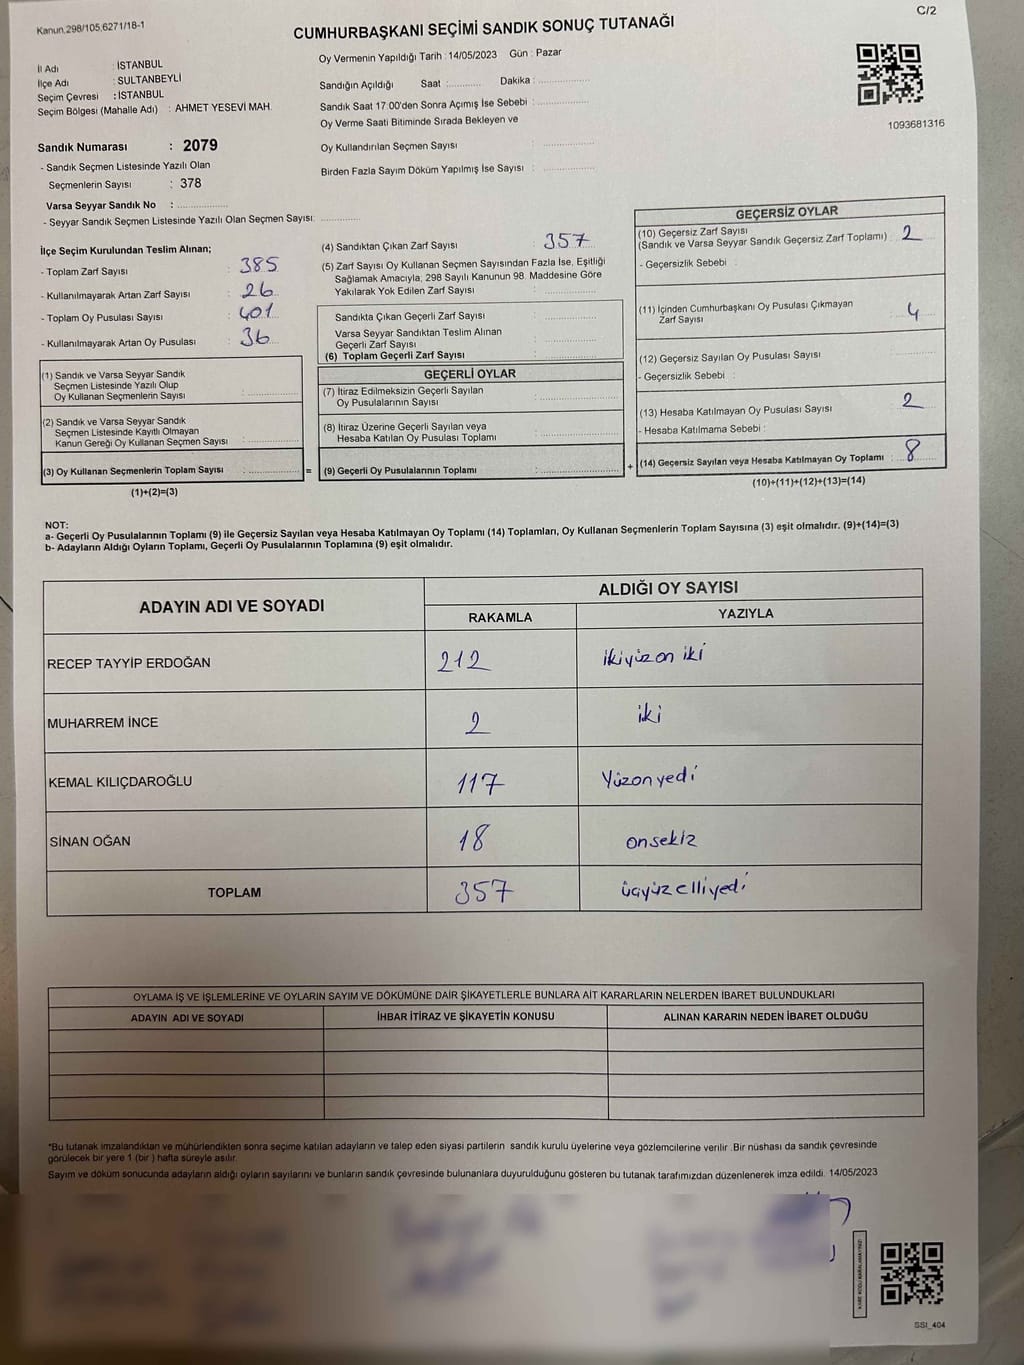 Kanun.298/105,6271/18-1
C/2
CUMHURBAŞKANI SEÇİMİ SANDIK SONUÇ TUTANAĞI
İl Adı : İSTANBUL
İlçe Adı : SULTANBEYLİ
Seçim Çevresi : İSTANBUL
Seçim Bölgesi (Mahalle Adı) : AHMET YESEVİ MAH.
Sandık Numarası : 2079
- Sandık Seçmen Listesinde Yazılı Olan
Seçmenlerin Sayısı : 378
Varsa Seyyar Sandık No :
- Seyyar Sandık Seçmen Listesinde Yazılı Olan Seçmen Sayısı:
Oy Vermenin Yapıldığı Tarih : 14/05/2023 Gün : Pazar
Sandığın Açıldığı Saat : Dakika :
Sandık Saat 17:00'den Sonra Açımış İse Sebebi :
Oy Verme Saati Bitiminde Sırada Bekleyen ve
Oy Kullandırılan Seçmen Sayısı :
Birden Fazla Sayım Döküm Yapılmış İse Sayısı :
1093681316
İlçe Seçim Kurulundan Teslim Alınan;
- Toplam Zarf Sayısı : 385
- Kullanılmayarak Artan Zarf Sayısı : 26
- Toplam Oy Pusulası Sayısı : 401
- Kullanılmayarak Artan Oy Pusulası : 36
(1) Sandık ve Varsa Seyyar Sandık
Seçmen Listesinde Yazılı Olup
Oy Kullanan Seçmenlerin Sayısı :
(2) Sandık ve Varsa Seyyar Sandık
Seçmen Listesinde Kayıtlı Olmayan
Kanun Gereği Oy Kullanan Seçmen Sayısı :
(3) Oy Kullanan Seçmenlerin Toplam Sayısı :
(1)+(2)=(3)
(4) Sandıktan Çıkan Zarf Sayısı : 357
(5) Zarf Sayısı Oy Kullanan Seçmen Sayısından Fazla İse, Eşitliği
Sağlamak Amacıyla; 298 Sayılı Kanunun 98. Maddesine Göre
Yakılarak Yok Edilen Zarf Sayısı :
Sandıkta Çıkan Geçerli Zarf Sayısı :
Varsa Seyyar Sandıktan Teslim Alınan
Geçerli Zarf Sayısı :
(6) Toplam Geçerli Zarf Sayısı :
GEÇERLİ OYLAR
(7) İtiraz Edilmeksizin Geçerli Sayılan
Oy Pusulalarının Sayısı :
(8) İtiraz Üzerine Geçerli Sayılan veya
Hesaba Katılan Oy Pusulası Toplamı :
= (9) Geçerli Oy Pusulalarının Toplamı :
GEÇERSİZ OYLAR
(10) Geçersiz Zarf Sayısı
(Sandık ve Varsa Seyyar Sandık Geçersiz Zarf Toplamı) : 2
- Geçersizlik Sebebi :
(11) İçinden Cumhurbaşkanı Oy Pusulası Çıkmayan
Zarf Sayısı : 4
(12) Geçersiz Sayılan Oy Pusulası Sayısı :
- Geçersizlik Sebebi :
(13) Hesaba Katılmayan Oy Pusulası Sayısı : 2
- Hesaba Katılmama Sebebi :
+ (14) Geçersiz Sayılan veya Hesaba Katılmayan Oy Toplamı : 8
(10)+(11)+(12)+(13)=(14)
NOT:
a- Geçerli Oy Pusulalarının Toplamı (9) ile Geçersiz Sayılan veya Hesaba Katılmayan Oy Toplamı (14) Toplamları, Oy Kullanan Seçmenlerin Toplam Sayısına (3) eşit olmalıdır. (9)+(14)=(3)
b- Adayların Aldığı Oyların Toplamı, Geçerli Oy Pusulalarının Toplamına (9) eşit olmalıdır.
ADAYIN ADI VE SOYADI
ALDIĞI OY SAYISI
RAKAMLA YAZIYLA
RECEP TAYYİP ERDOĞAN 212 ikiyüzon iki
MUHARREM İNCE 2 iki
KEMAL KILIÇDAROĞLU 117 Yüzonyedi
SİNAN OĞAN 18 onsekiz
TOPLAM 357 üçyüzelliyedi
OYLAMA İŞ VE İŞLEMLERİNE VE OYLARIN SAYIM VE DÖKÜMÜNE DAİR ŞİKAYETLERLE BUNLARA AİT KARARLARIN NELERDEN İBARET BULUNDUKLARI
ADAYIN ADI VE SOYADI İHBAR İTİRAZ VE ŞİKAYETİN KONUSU ALINAN KARARIN NEDEN İBARET OLDUĞU
*Bu tutanak imzalandıktan ve mühürlendikten sonra seçime katılan adayların ve talep eden siyasi partilerin sandık kurulu üyelerine veya gözlemcilerine verilir. Bir nüshası da sandık çevresinde
görülecek bir yere 1 (bir ) hafta süreyle asılır.
Sayım ve döküm sonucunda adayların aldığı oyların sayılarını ve bunların sandık çevresinde bulunanlara duyurulduğunu gösteren bu tutanak tarafımızdan düzenlenerek imza edildi. 14/05/2023
KARE KODU KARALAMAYINIZ!
SSI_404